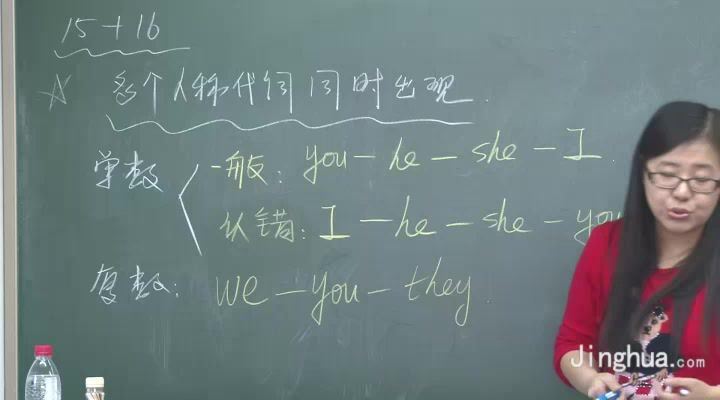 15+16
☆ 多个人称代词同时出现.
单数
一般: you — he — she — I.
认错: I — he — she — you
复数: we — you — they.
Jinghua.com